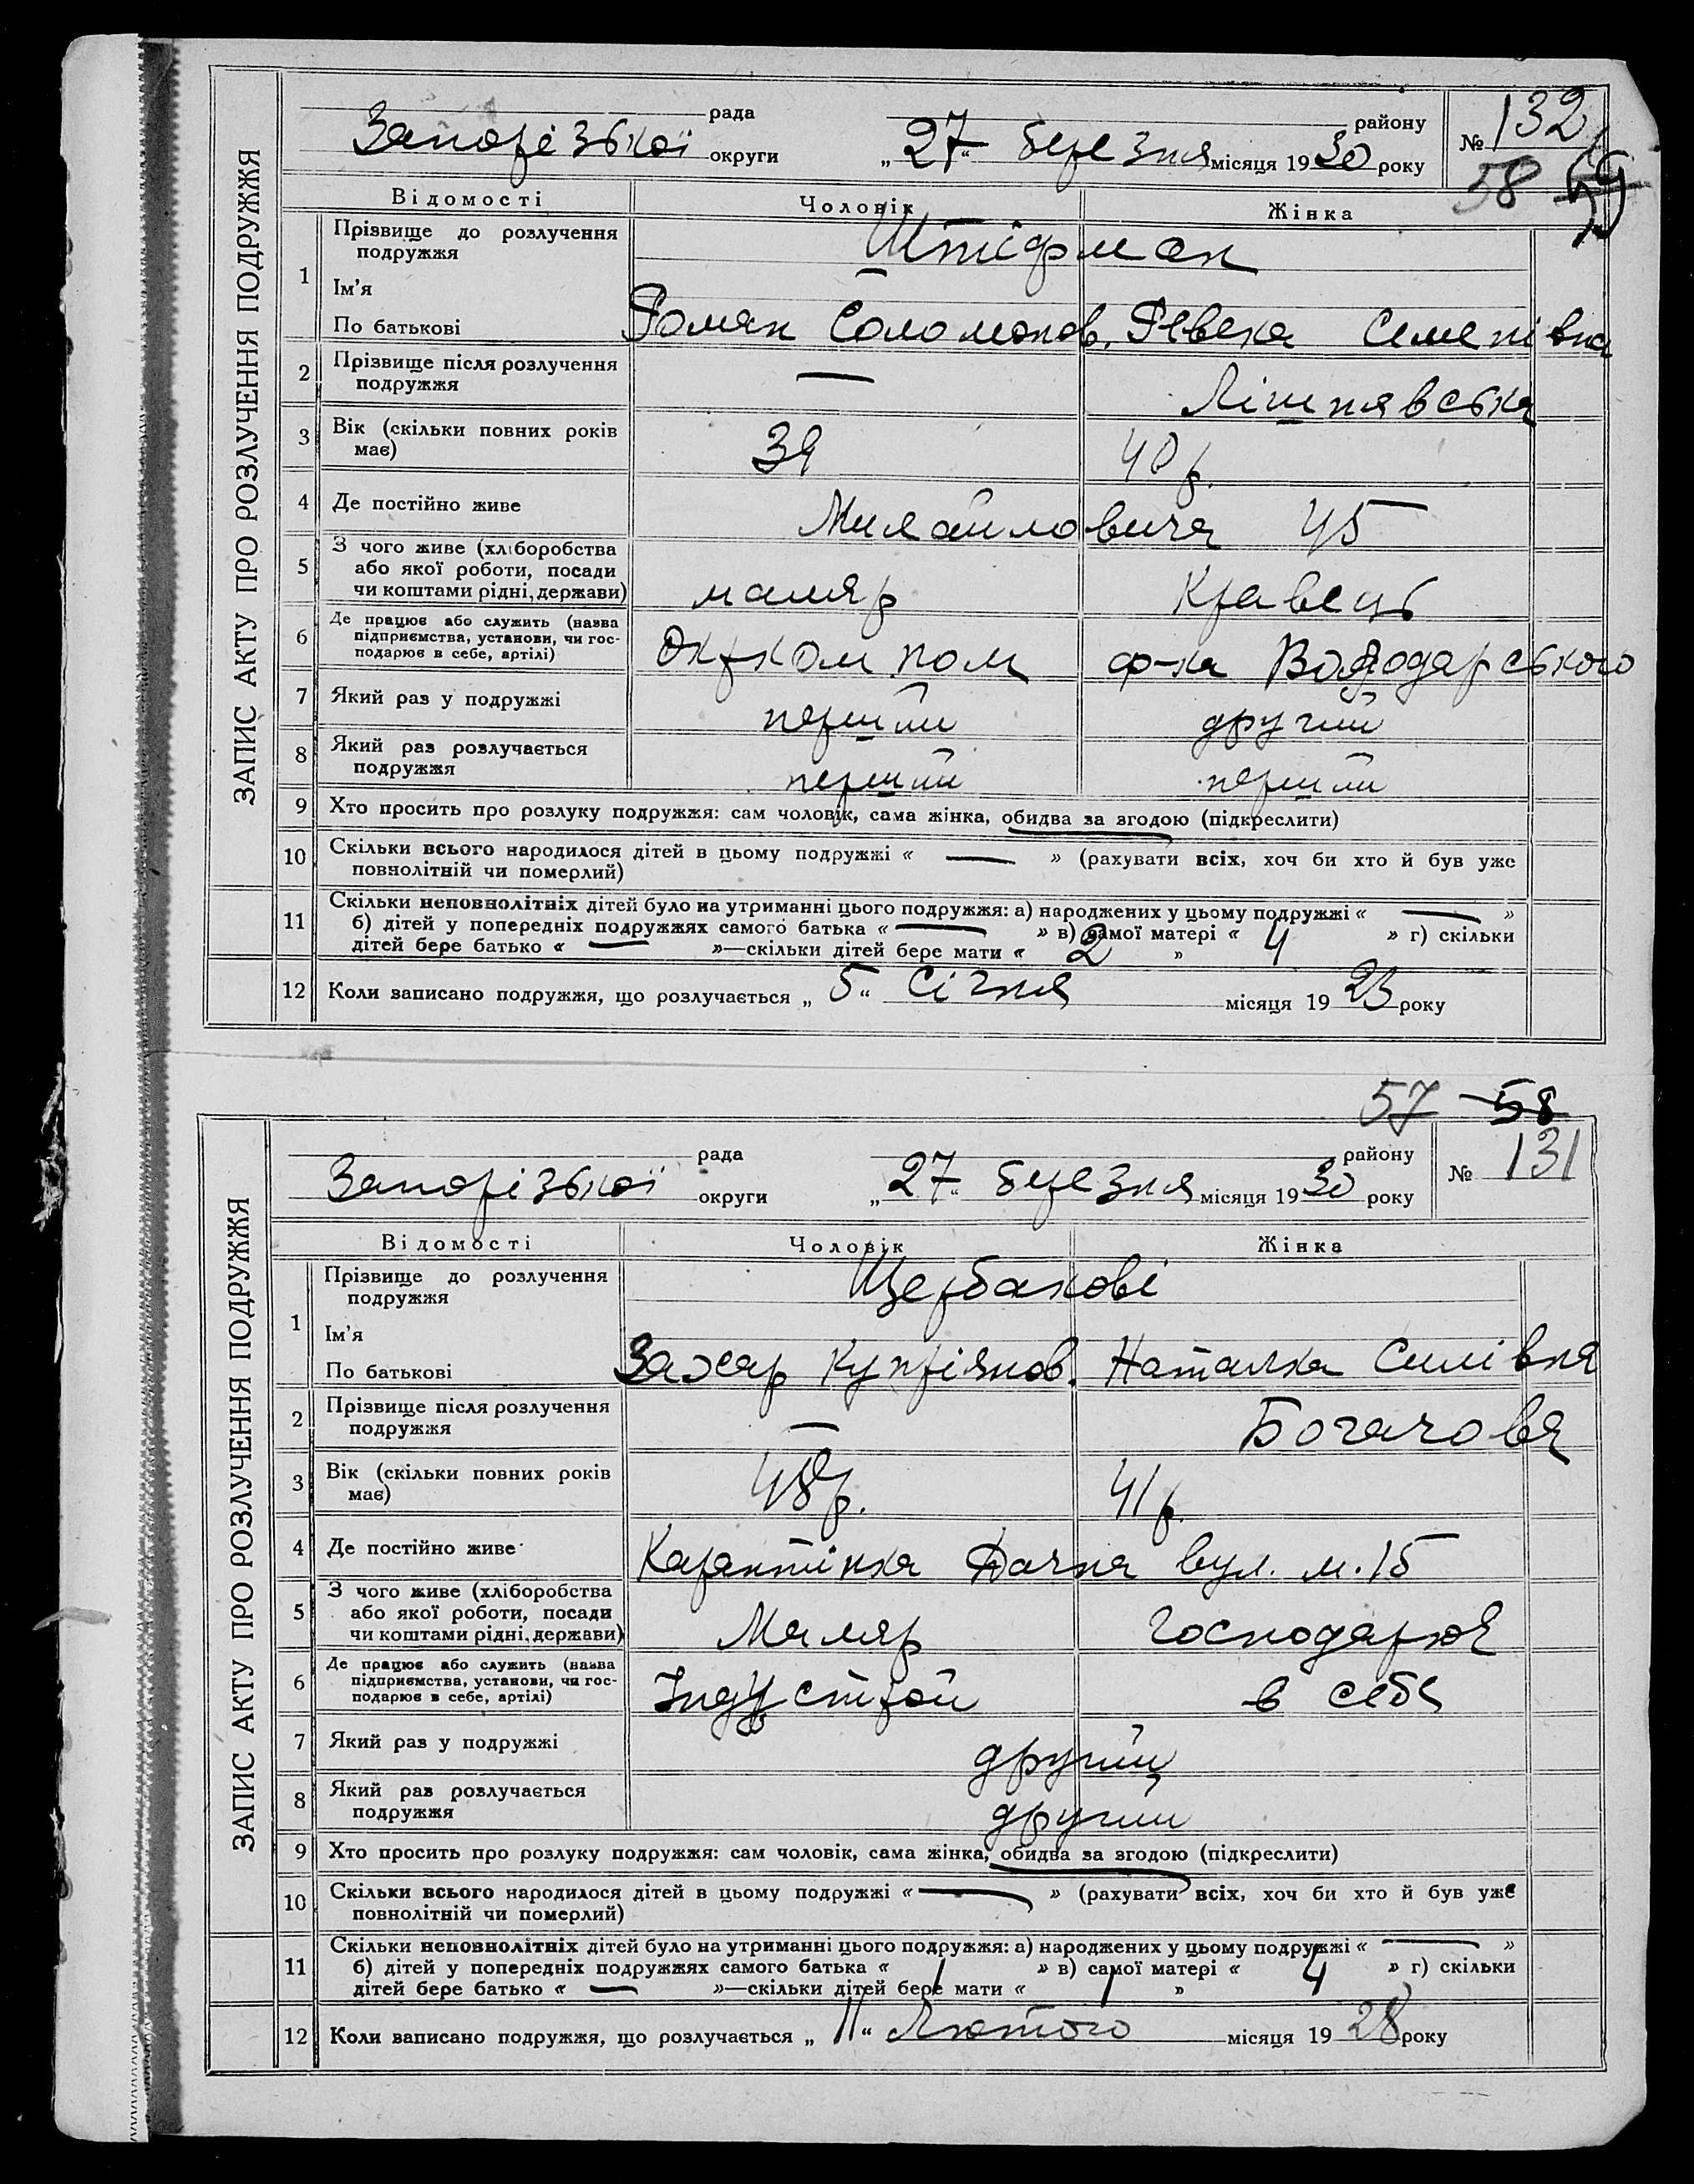 ЗАПИС АКТУ ПРО РОЗЛУЧЕННЯ ПОДРУЖЖЯ
рада
району
Запорізької округи „27“ березня місяця 1930 року
№ 132
58 59
Відомості Чоловік Жінка
1 Прізвище до розлучення подружжя Штіфман
Ім'я
По батькові Роман Соломонов. Ревека Семенівна
2 Прізвище після розлучення подружжя — Лішнявська
3 Вік (скільки повних років має) 39 40 р.
4 Де постійно живе 45
5 З чого живе (хліборобства або якої роботи, посади чи коштами рідні, держави) маляр Кравець
6 Де працює або служить (назва підприємства, установи, чи господарює в себе, артілі) Окркомпом ф-ка Володарського
7 Який раз у подружжі перший другий
8 Який раз розлучається подружжя перший перший
9 Хто просить про розлуку подружжя: сам чоловік, сама жінка, обидва за згодою (підкреслити)
10 Скільки всього народилося дітей в цьому подружжі « — » (рахувати всіх, хоч би хто й був уже
повнолітній чи померлий)
11 Скільки неповнолітніх дітей було на утриманні цього подружжя: а) народжених у цьому подружжі « — »
б) дітей у попередніх подружжях самого батька « — » в) самої матері « 4 » г) скільки
дітей бере батько « — »—скільки дітей бере мати « 2 »
12 Коли записано подружжя, що розлучається „5“ Січня місяця 1923 року
57 58
ЗАПИС АКТУ ПРО РОЗЛУЧЕННЯ ПОДРУЖЖЯ
рада
району
Запорізької округи „27“ березня місяця 1930 року
№ 131
Відомості Чоловік Жінка
1 Прізвище до розлучення подружжя Щербакові
Ім'я
По батькові Захар Купріянов. Наталка Силівна
2 Прізвище після розлучення подружжя — Богачова
3 Вік (скільки повних років має) 48р. 41р.
4 Де постійно живе Карантінка Дачна вул. м. 15
5 З чого живе (хліборобства або якої роботи, посади чи коштами рідні, держави) Маляр господарює
6 Де працює або служить (назва підприємства, установи, чи господарює в себе, артілі) Індустрой в себе
7 Який раз у подружжі другий
8 Який раз розлучається подружжя другий
9 Хто просить про розлуку подружжя: сам чоловік, сама жінка, обидва за згодою (підкреслити)
10 Скільки всього народилося дітей в цьому подружжі « — » (рахувати всіх, хоч би хто й був уже
повнолітній чи померлий)
11 Скільки неповнолітніх дітей було на утриманні цього подружжя: а) народжених у цьому подружжі « — »
б) дітей у попередніх подружжях самого батька « 1 » в) самої матері « 4 » г) скільки
дітей бере батько « — »—скільки дітей бере мати « 1 »
12 Коли записано подружжя, що розлучається „11“ Лютого місяця 1928 року